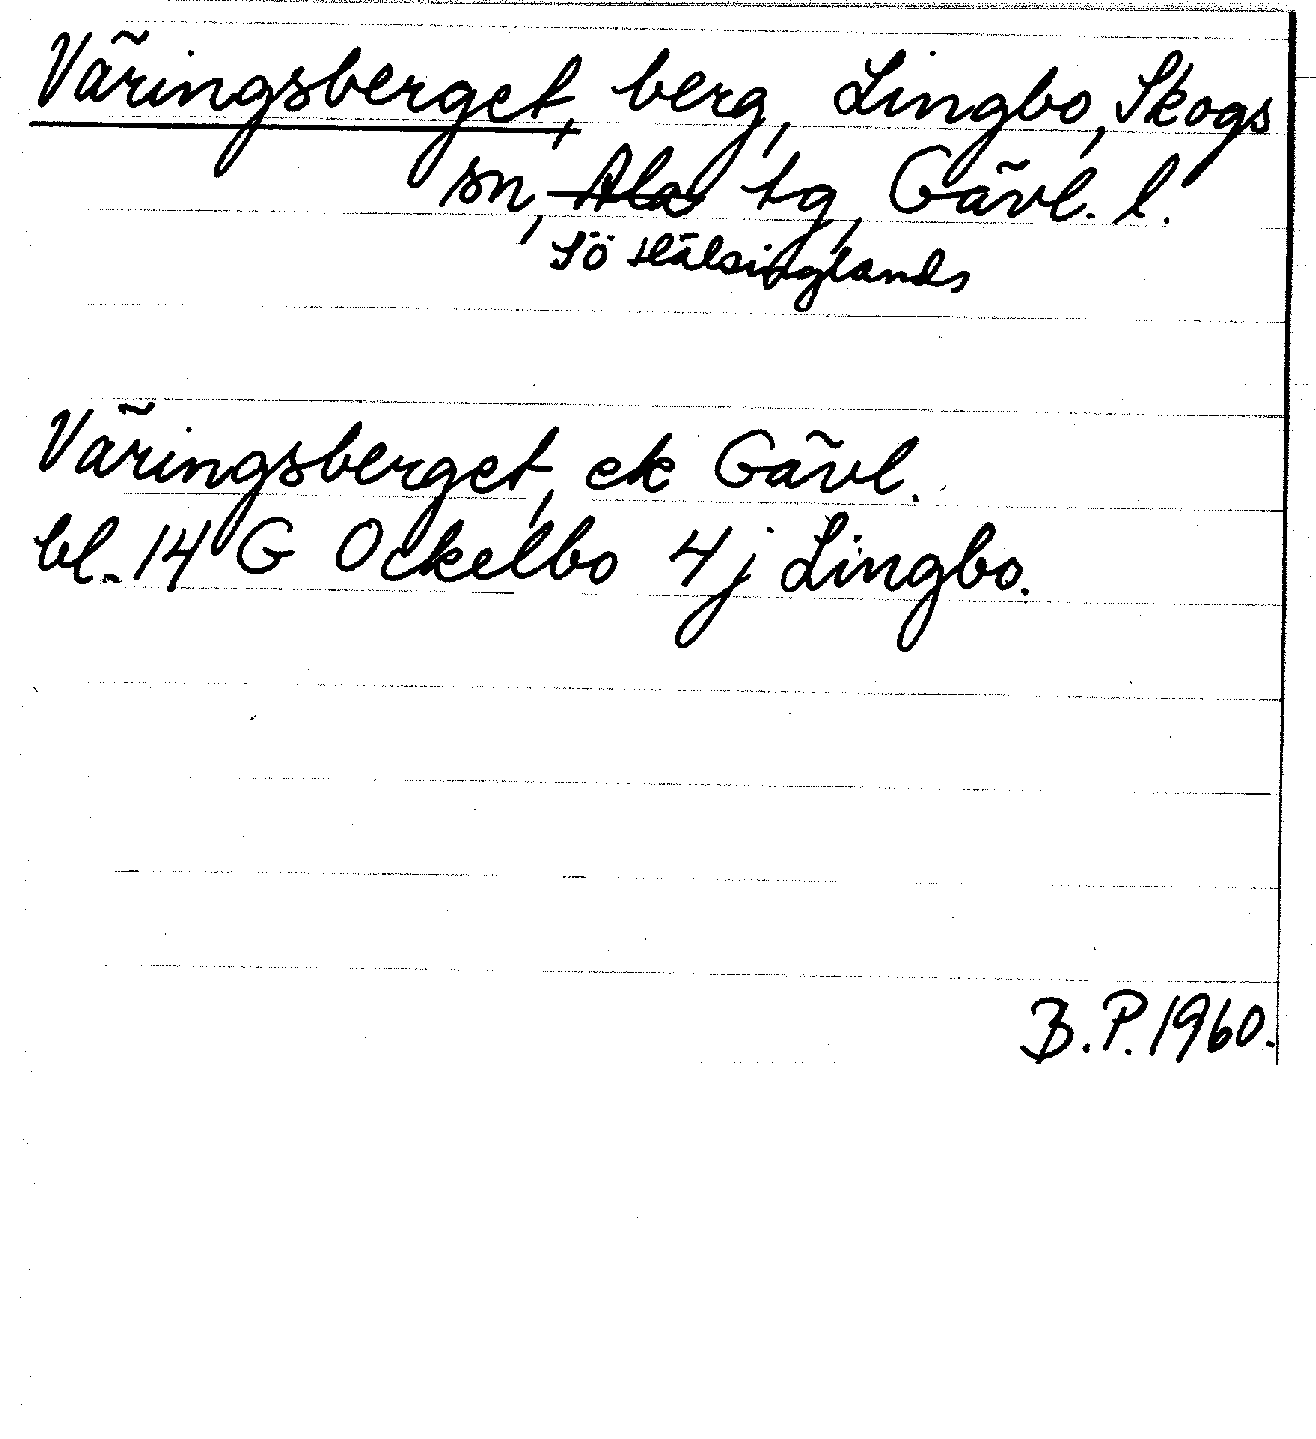 Väringsberget, berg, Lingbo, Skogs
sn, Ala tg, Gävl. l.
Sö Hälsinglands
Väringsberget, ek Gävl.
bl. 14 G Ockelbo 4 j Lingbo.
B.P. 1960.